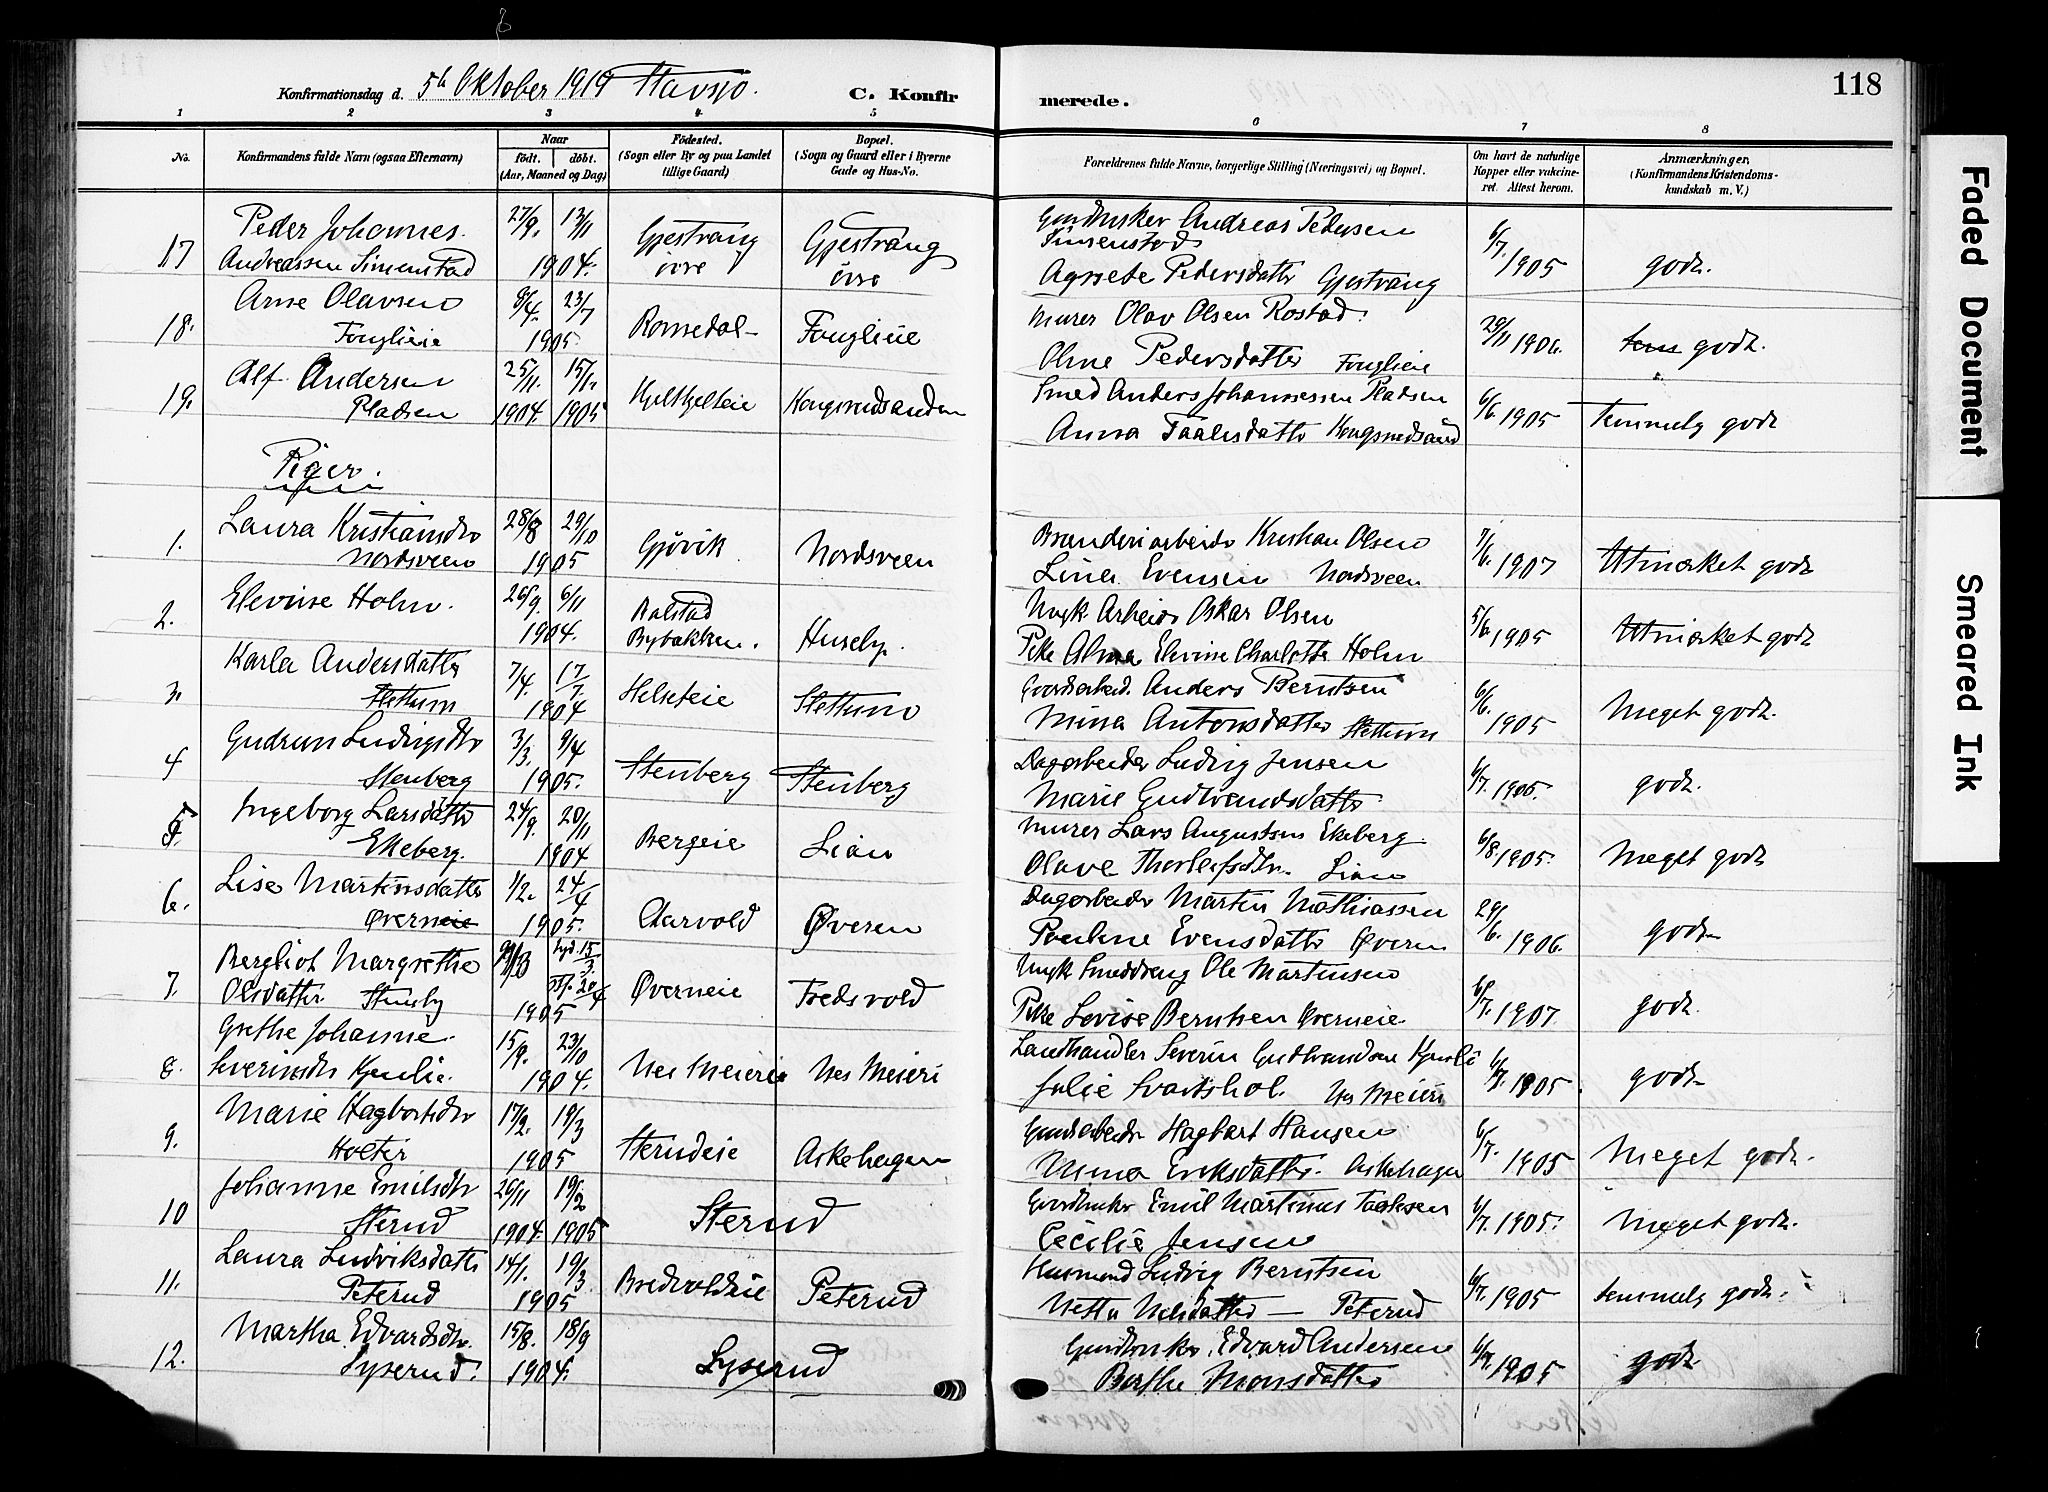 118
Konfirmationsdag d. 5th Oktober 1919 Stavsjø. C. Konfirmerede.
1 2 3 4 5 6 7 8
No.
Konfirmandens fulde Navn (ogsaa Efternavn)
Naar
født. døbt.
(Aar, Maaned og Dag)
Fødested.
(Sogn eller By og paa Landet
tillige Gaard)
Bopæl.
(Sogn og Gaard eller i Byerne
Gade og Hus-No.
Forældrenes fulde Navne, borgerlige Stilling (Næringsvei) og Bopæl.
Om havt de naturlige
Kopper eller vakcine-
ret. Attest herom.
Anmærkninger.
(Konfirmandens Kristendoms-
kundskab m. V.)
Peder Johannes 27/9. 13/11 Gjestvang Gjestvang Andreas Pedersen 6/7.
17 Andreassen Simenstad 1904. øvre øvre Simenstad 1905 godt.
Agnete Pedersdatter Gjestvang
Arne Olavsen 8/4. 23/7 Murer Olav Olsen Rostad.
18. Fonglieie 1905 Romedal Fonglieie 29/11 1906. godt.
Oline Pedersdatter Fonglieie
Alf Andersen 25/11. 15/1. Smed Anders Johannessen Pladsen
19. Pladsen 1904. 1905 6/6. 1905 temmelig godt
Anna
Piger.
Laura Kristiansdtr 28/8 29/10 Brænderiarbeider Kristian Olsen 7/6.
1. Nordsveen 1905 Gjøvik Nordsveen Lina Evensen Nordsveen 1907 Utmærket godt
Elevine Holm. 26/9. 6/11 Balstad Ungk. Arbeider Oskar Olsen 5/6.
2. 1904. Bybakken. Huseby. 1905 Utmærket godt
Pike Alma Elevine Charlotte Holm
Karla Andersdatter 7/4. 17/7 Anders Berntsen 6/6.
3. Stettum 1904 Helseteie Stettum Mina Antonsdatter Stettum 1905 Meget godt.
Gudrun Ludvigsdtr 3/3. 9/4 Dagarbeider Ludvig Jensen
4 Stenberg 1905. Stenberg Stenberg Marie Gudbrandsdatter 6/7. 1905. godt.
Ingeborg Larsdatter 24/9. 20/11 Murer Lars Augustsen Ekeberg
5. Ekeberg. 1904 Bergeie Lien Olave Thorleifsdtr. Lien 6/8. 1905. Meget godt
Lise Martinsdatter 1/2. 24/4 Dagarbeider Martin Mathiassen 29/6.
6. Øverneie 1905. Aarvold Øveren Pauline Evensdatter Øveren 1906. godt
Bergliot Margrethe hjd. 15/3. Ungk. Smeddreng Ole Martinsen
7. Olsdatter Stensby 20/4 1905 Øverneie Fredsvold Pike Lovise Berntsen Øverneie 6/7. 1907. godt.
Grethe Johanne 15/9. 23/10 Landhandler Severin Gudbrandsen
8. Severinsdtr 1904. Nes Meieri Nes Meieri Julie Svartshol. Nes Meieri 6/7. 1905. godt
Marie Hagbartsdtr 17/2. 19/3 Hagbart Hansen 6/7.
9. Holter 1905 Sterudeie Askehagen Eriksdatter. Askehagen 1905 Meget godt.
Johanne Emilsdtr 26/11 19/2 Emil Martinus
10 Sterud 1904. 1905 Sterud Cecilie Jensen 6/7. 1905. Meget godt.
Laura Ludviksdatter 14/1. 19/3 Husmand Ludvig Berntsen
11. Peterud 1905 Bredvoldeie Peterud Netta Nilsdatter — Peterud 6/7. 1905 temmelig godt.
Martha Edvardsdtr. 15/8. 18/9 Edvard Andersen
12. Lyserud. 1904. Lyserud Berthe Monsdatter 6/7. 1905 godt
Faded Document
Smeared Ink